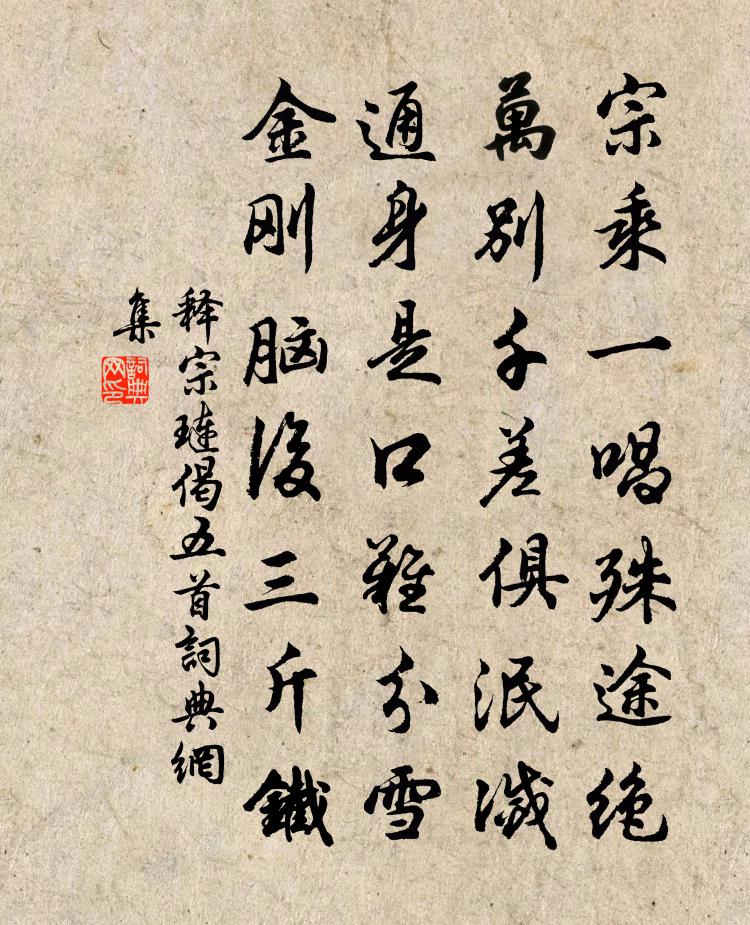 宗乘一唱殊途绝
萬别千差俱泯滅
通身是口難分雪
金刚脑後三斤鐵
释宗璉偈五首詞典網
集
詞典
网印